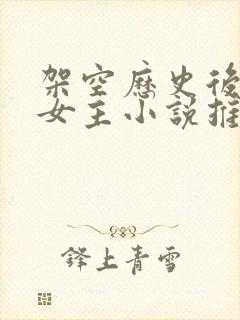 架空歷史後
女主小說推
鋒上青雪